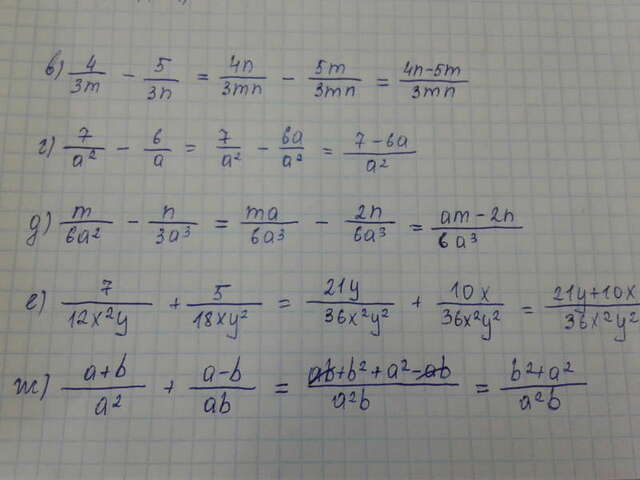 в) 4/3m - 5/3n = 4n/3mn - 5m/3mn = 4n-5m/3mn
г) 7/a² - 6/a = 7/a² - 6a/a² = 7-6a/a²
д) m/6a² - n/3a³ = ma/6a³ - 2n/6a³ = am-2n/6a³
е) 7/12x²y + 5/18xy² = 21y/36x²y² + 10x/36x²y² = 21y+10x/36x²y²
ж) a+b/a² + a-b/ab = ab+b²+a²-ab/a²b = b²+a²/a²b